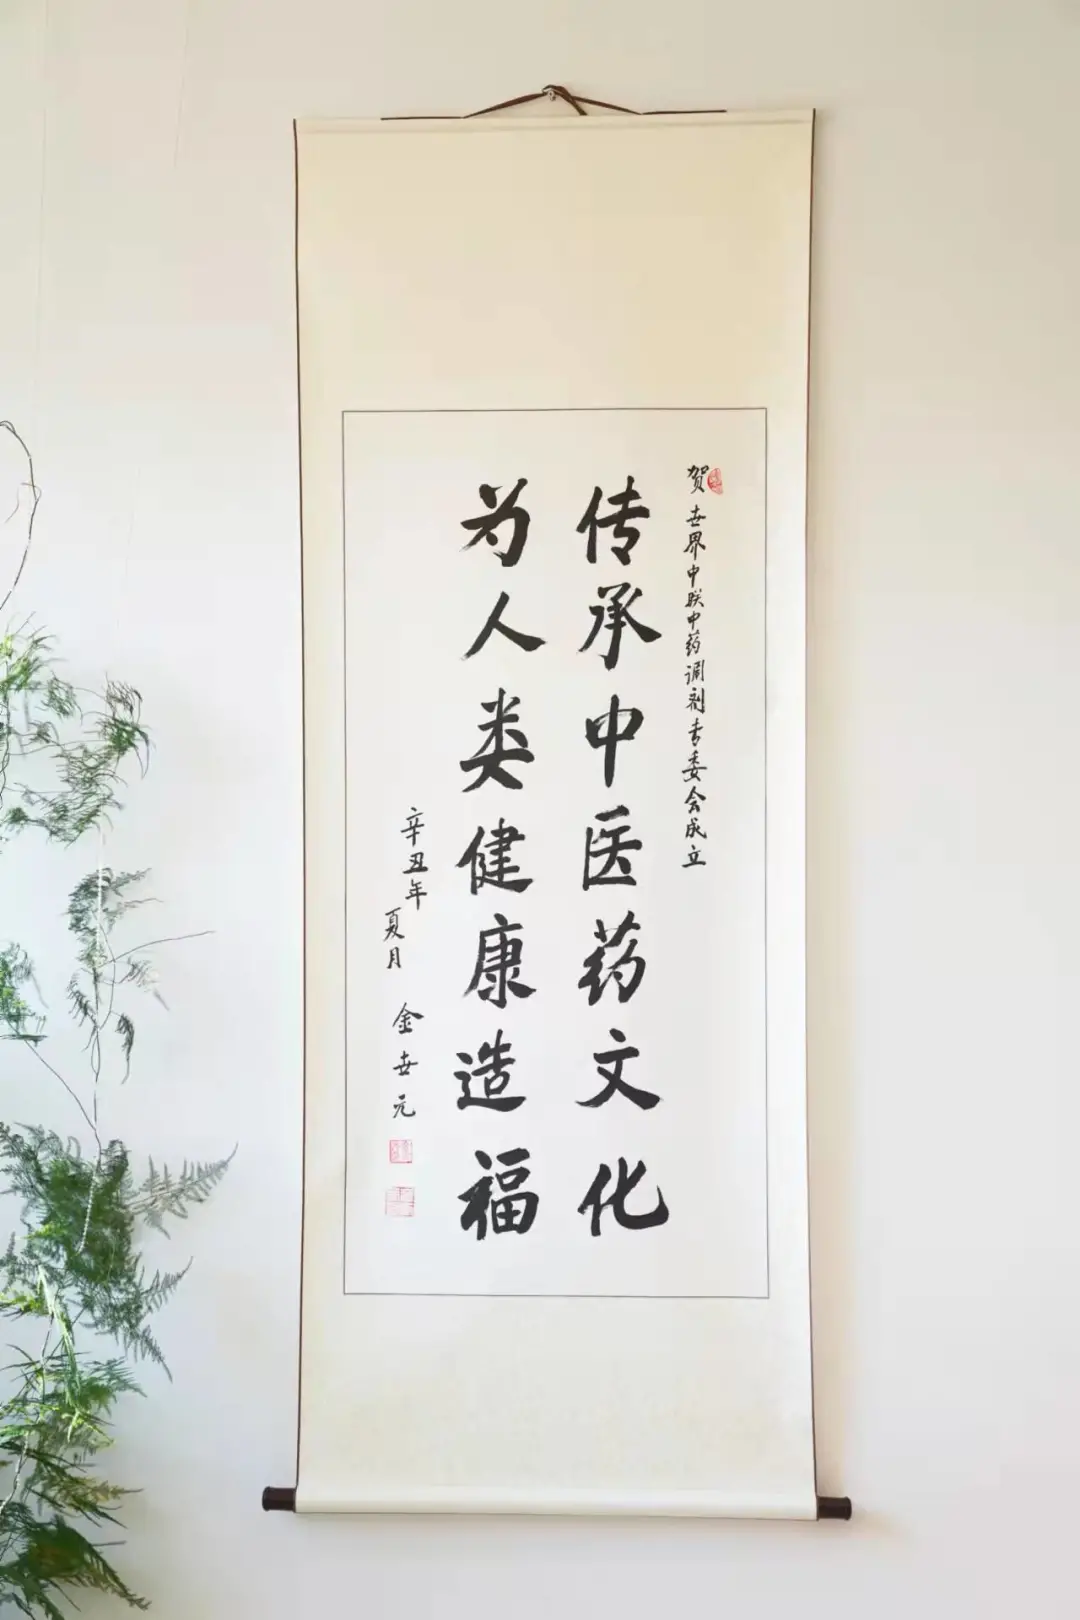 贺世界中联中药调剂专委会成立
传承中医药文化
为人类健康造福
辛丑年
夏月
金世元